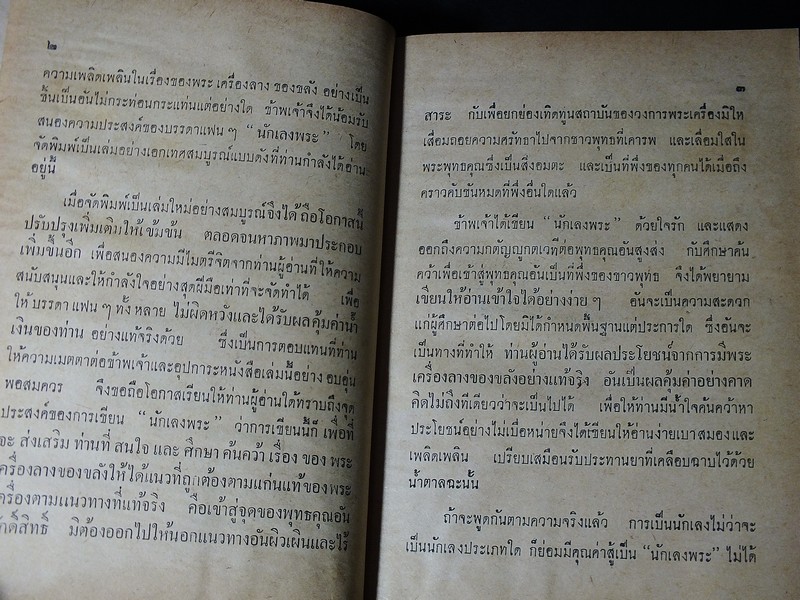 ๒
ความเพลิดเพลินในเรื่องของพระ เครื่องลาง ของขลัง อย่างเป็น
ขึ้นเป็นอันไม่กระท่อนกระแท่นแต่อย่างใด ข้าพเจ้าจึงได้น้อมรับ
สนองความประสงค์ของบรรดาแฟน ๆ “นักเลงพระ” โดย
จัดพิมพ์เป็นเล่มอย่างเอกเทศสมบูรณ์แบบดังที่ท่านกำลังได้อ่าน
อยู่นี้
เมื่อจัดพิมพ์เป็นเล่มใหม่อย่างสมบูรณ์จึงได้ถือโอกาสนี้
ปรับปรุงเพิ่มเติมให้เข้มข้น ตลอดจนหาภาพมาประกอบ
เพิ่มขึ้นอีก เพื่อสนองความมีไมตรีจิตจากท่านผู้อ่านที่ให้ความ
สนับสนุนและให้กำลังใจอย่างสุดฝีมือเท่าที่จะจัดทำได้ เพื่อ
ให้ บรรดา แฟน ๆ ทั้ง หลาย ไม่ผิดหวังและได้รับผลคุ้มค่าน้ำ
เงินของท่าน อย่างแท้จริงด้วย ซึ่งเป็นการตอบแทนที่ท่าน
ให้ความเมตตาต่อข้าพเจ้าและอุปการะหนังสือเล่มนี้อย่าง อบอุ่น
พอสมควร จึงขอถือโอกาสเรียนให้ท่านผู้อ่านได้ทราบถึงจุด
ประสงค์ของการเขียน “นักเลงพระ” ว่าการเขียนนี้ก็ เพื่อที่
จะ ส่งเสริม ท่านที่ สนใจ และ ศึกษา ค้นคว้า เรื่อง ของ พระ
ครื่องลางของขลังให้ได้แนวที่ถูกต้องตามแก่นแท้ของพระ
ครื่องตามแนวทางที่แท้จริง คือเข้าสู่จุดของพุทธคุณอัน
ศักดิ์สิทธิ์ มิต้องออกไปให้นอกแนวทางอันผิวเผินและไร้
๓
สาระ กับเพื่อยกย่องเทิดทูนสถาบันของวงการพระเครื่องมิให้
เสื่อมถอยความศรัทธาไปจากชาวพุทธที่เคารพ และเลื่อมใสใน
พระพุทธคุณซึ่งเป็นสิ่งอมตะ และเป็นที่พึ่งของทุกคนได้เมื่อถึง
คราวคับขันหมดที่พึ่งอื่นใดแล้ว
ข้าพเจ้าได้เขียน “นักเลงพระ” ด้วยใจรัก และแสดง
ออกถึงความกตัญญูกตเวทีต่อพุทธคุณอันสูงส่ง กับศึกษาค้น
คว้าเพื่อเข้าสู่พุทธคุณอันเป็นที่พึ่งของชาวพุทธ จึงได้พยายาม
เขียนให้อ่านเข้าใจได้อย่างง่าย ๆ อันจะเป็นความสะดวก
แก่ผู้ศึกษาต่อไปโดยมิได้กำหนดพื้นฐานแต่ประการใด ซึ่งอันจะ
เป็นทางที่ทำให้ ท่านผู้อ่านได้รับผลประโยชน์จากการมีพระ
เครื่องลางของขลังอย่างแท้จริง อันเป็นผลคุ้มค่าอย่างคาด
คิดไม่ถึงทีเดียวว่าจะเป็นไปได้ เพื่อให้ท่านมีน้ำใจค้นคว้าหา
ประโยชน์อย่างไม่เบื่อหน่ายจึงได้เขียนให้อ่านง่ายเบาสมอง และ
เพลิดเพลิน เปรียบเสมือนรับประทานยาที่เคลือบฉาบไว้ด้วย
น้ำตาลฉะนั้น
ถ้าจะพูดกันตามความจริงแล้ว การเป็นนักเลงไม่ว่าจะ
เป็นนักเลงประเภทใด ก็ย่อมมีคุณค่าสู้เป็น “นักเลงพระ” ไม่ได้